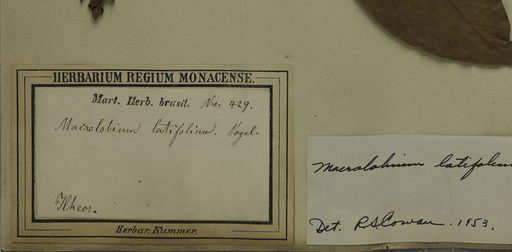 HERBARIUM REGIUM MONACENSE.
Mart. Herb. brasil. No. 429.
Macrolobium latifolium. Vogel.
Ilheos.
Herbar. Kummer.
Macrolobium latifolium
Det. RSCowan. 1953.